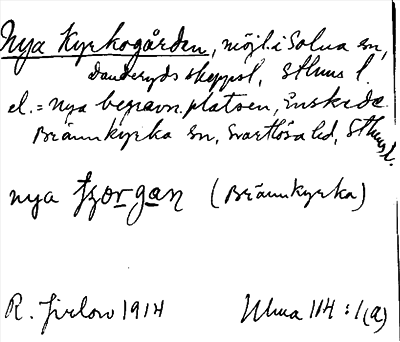 Nya Kyrkogården, möjl. i Solna sn,
Danderyds skeppsl, Sthlms l.
el. = nya begravn.platsen, Enskede
Brännkyrka sn, Svartlösa hd, Sthlms l.
nya tjorgan (Brännkyrka)
R. Jirlow 1914 Ulma 114:1(a)